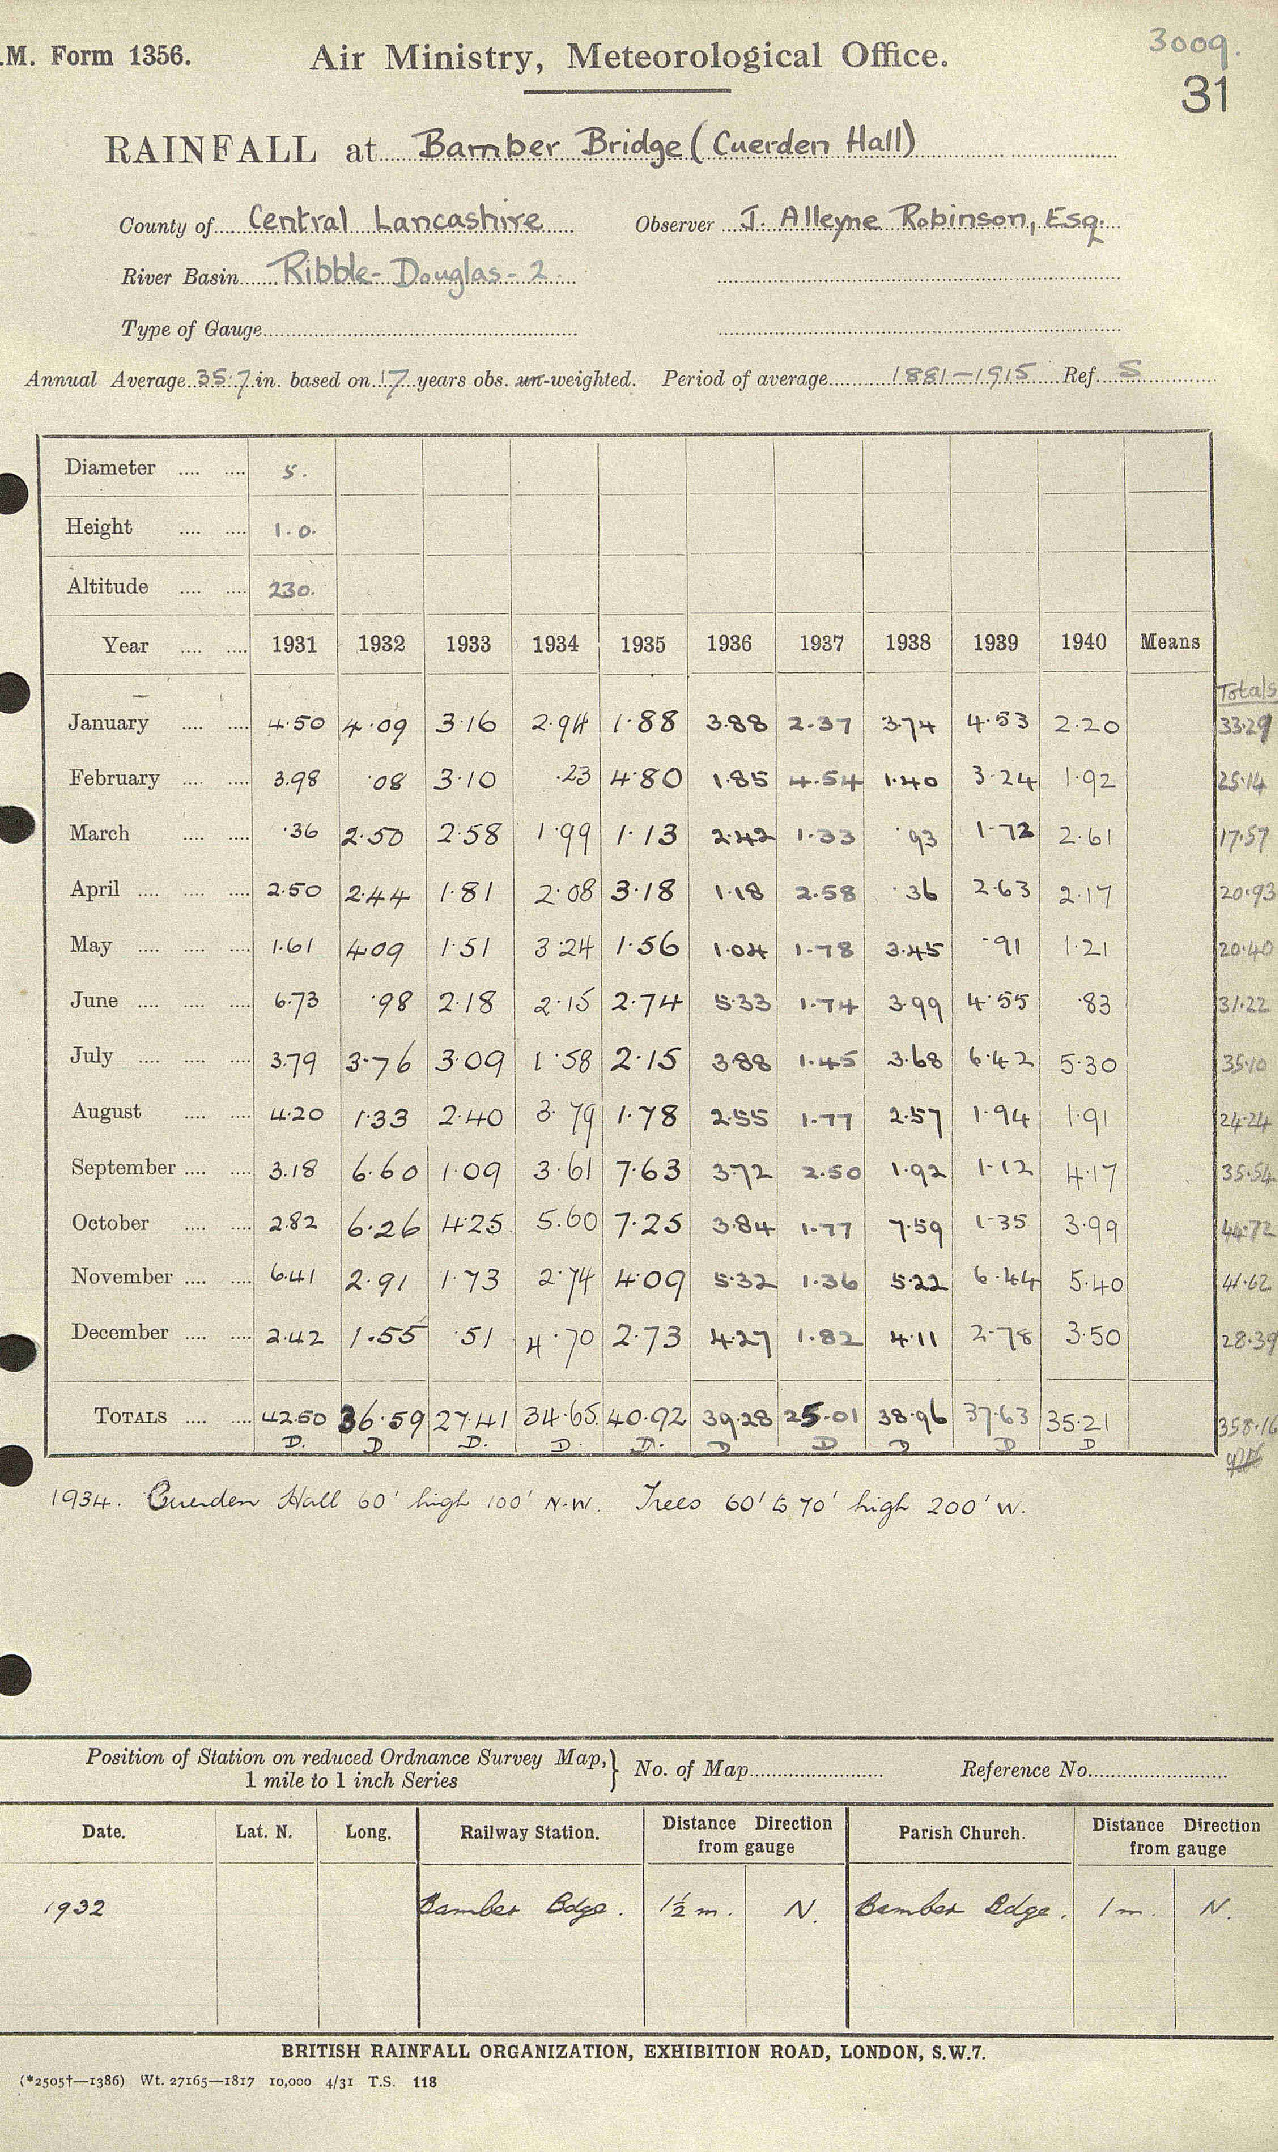 .M. Form 1356. Air Ministry, Meteorological Office. 3009.
31
RAINFALL at Bamber Bridge (Cuerden Hall)
County of Central Lancashire Observer J. Alleyne Robinson, Esq.
River Basin Ribble-Douglas-2
Type of Gauge
Annual Average 35.7 in. based on 17 years obs. un-weighted. Period of average 1881-1915 Ref. S
Diameter .... .... 5.
Height .... .... 1.0.
Altitude .... .... 230.
Year .... .... 1931 1932 1933 1934 1935 1936 1937 1938 1939 1940 Means
Totals
January .... .... 4.50 4.09 3.16 2.94 1.88 3.88 2.37 3.74 4.53 2.20 33.29
February .... .... 3.98 .08 3.10 .23 4.80 1.85 4.54 1.40 3.24 1.92 25.14
March .... .... .36 2.50 2.58 1.99 1.13 2.42 1.33 .93 1.72 2.61 17.57
April .... .... .... 2.50 2.44 1.81 2.08 3.18 1.18 2.58 .36 2.63 2.17 20.93
May .... .... .... 1.61 4.09 1.51 3.24 1.56 1.04 1.78 3.45 .91 1.21 20.40
June .... .... .... 6.73 .98 2.18 2.15 2.74 5.33 1.74 3.99 4.55 .83 31.22
July .... .... .... 3.79 3.76 3.09 1.58 2.15 3.88 1.45 3.68 6.42 5.30 35.10
August .... .... 4.20 1.33 2.40 3.79 1.78 2.55 1.77 2.57 1.94 1.91 24.24
September .... .... 3.18 6.60 1.09 3.61 7.63 3.72 2.50 1.92 1.12 4.17 35.54
October .... .... 2.82 6.26 4.25 5.60 7.25 3.84 1.77 7.59 1.35 3.99 44.72
November .... .... 6.41 2.91 1.73 2.74 4.09 5.32 1.36 5.22 6.44 5.40 41.62
December .... .... 2.42 1.55 .51 4.70 2.73 4.27 1.82 4.11 2.78 3.50 28.39
TOTALS .... .... 42.50 36.59 27.41 34.65 40.92 39.28 25.01 38.96 37.63 35.21 358.16
D. D D. D D. D D D D D
1934. Cuerden Hall 60' high 100' N.W. Trees 60' to 70' high 200' W.
Position of Station on reduced Ordnance Survey Map, } No. of Map Reference No.
1 mile to 1 inch Series
Date. Lat. N. Long. Railway Station. Distance Direction from gauge Parish Church. Distance Direction from gauge
1932 Bamber Bdge. 1½ m. N. Bamber Bdge. 1 m. N.
BRITISH RAINFALL ORGANIZATION, EXHIBITION ROAD, LONDON, S.W.7.
(*2505†—1386) Wt. 27165—1817 10,000 4/31 T.S. 118